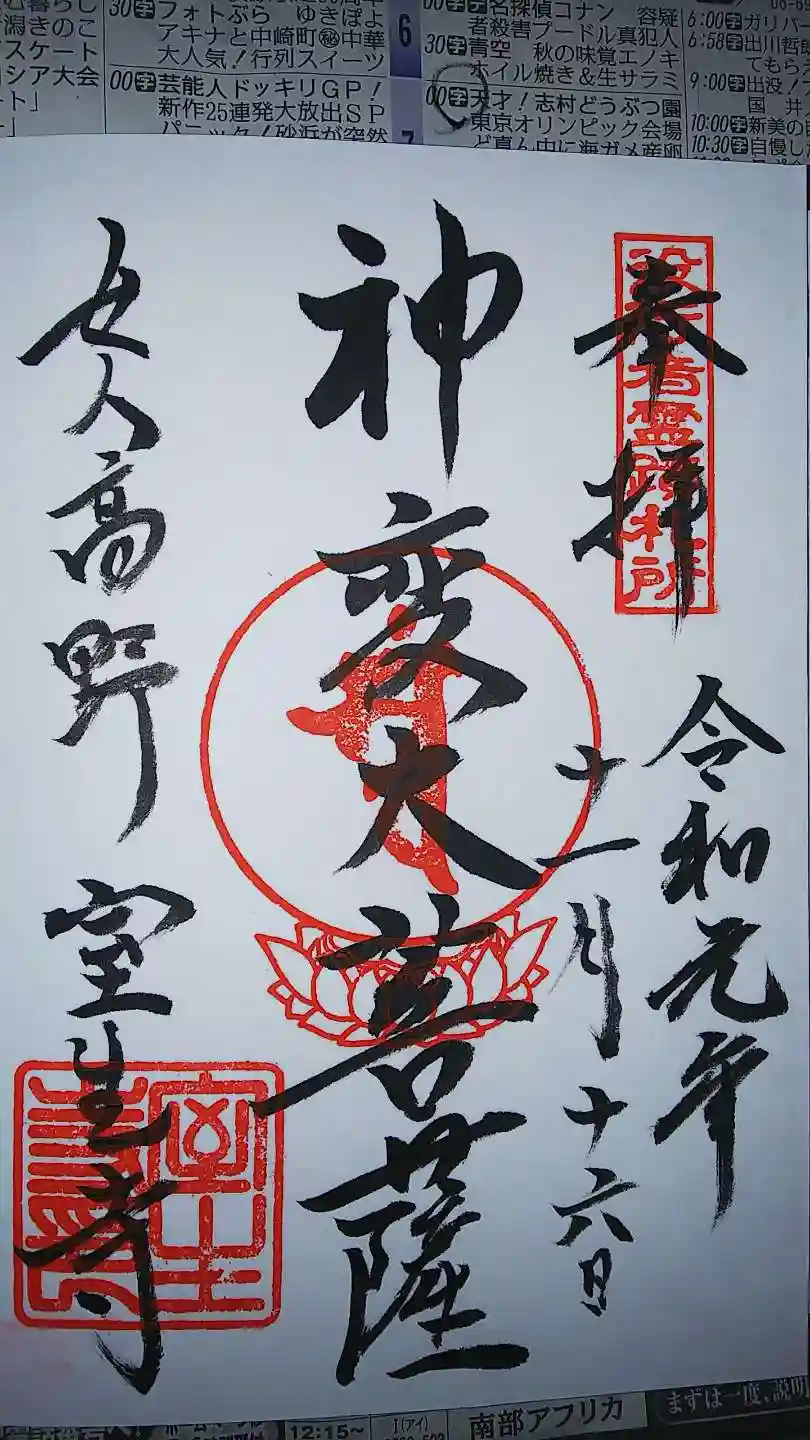 30字
フォトぶら ゆきぽよ
アキナと中崎町㊙中華
大人気!行列スイーツ
00字芸能人ドッキリGP!
新作25連発大放出SP
パニック!砂浜が突然
スケート
シア大会
6
7
名探偵コナン 容疑
者殺害プードル真犯人
30字青空 秋の味覚エノキ
ホイル焼き&生サラミ
00字天才!志村どうぶつ園
東京オリンピック会場
ど真ん中に海ガメ産卵
6:00字ガリバー
6:58字出川哲郎
てもら
9:00字出没!
10:00字新美の
10:30字自慢し
奉拝
役行者霊蹟札所
令和元年
十一月十六日
神変大菩薩
女人高野 室生寺
12:15~
I(アイ)
南部アフリカ
まずは一度、説明